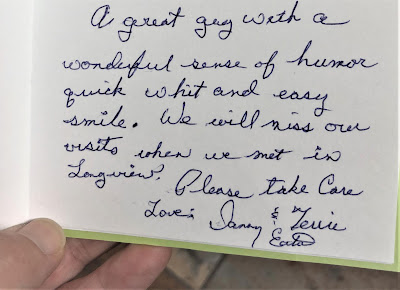 A great guy with a
wonderful sense of humor
quick whit and easy
smile. We will miss our
visits when we met in
Longview.
Please take Care
Love: Danny & Terrie